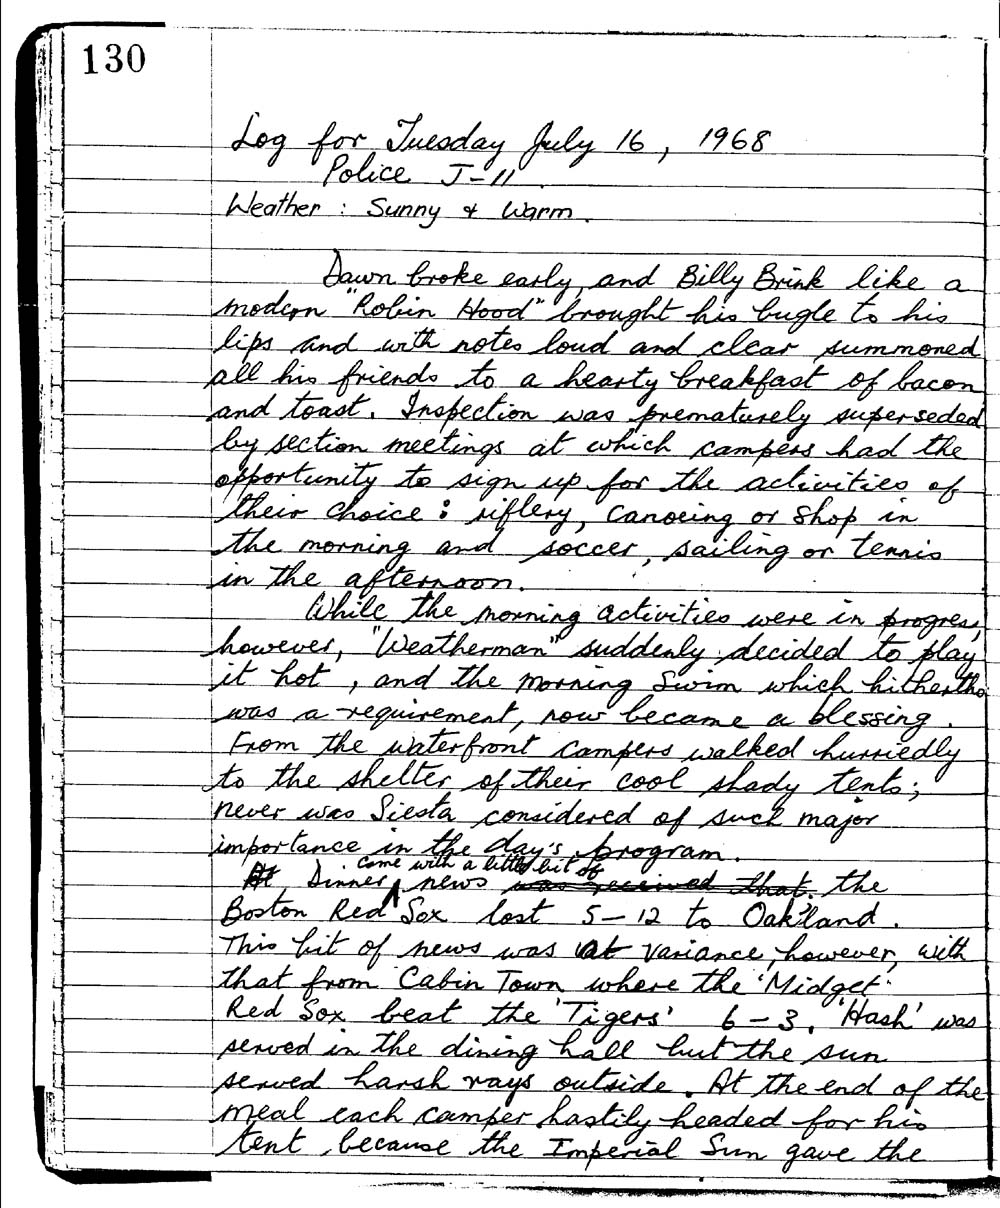 130
Log for Tuesday July 16, 1968
Police J-11.
Weather : Sunny & Warm.
Dawn broke early, and Billy Brink like a
modern "Robin Hood" brought his bugle to his
lips and with notes loud and clear summoned
all his friends to a hearty breakfast of bacon
and toast. Inspection was prematurely superseded
by section meetings at which campers had the
opportunity to sign up for the activities of
their choice : riflery, canoeing or shop in
the morning and soccer, sailing or tennis
in the afternoon.
While the morning activities were in progress,
however, "Weatherman" suddenly decided to play
it hot, and the morning swim which hithertho
was a requirement, now became a blessing.
From the waterfront campers walked hurriedly
to the shelter of their cool shady tents;
never was Siesta considered of such major
importance in the day's program.
came with a little bit of
At Dinner news was received that the
Boston Red Sox lost 5-12 to Oakland.
This bit of news was at variance, however, with
that from Cabin Town where the 'Midget'
Red Sox beat the 'Tigers' 6-3. 'Hash' was
served in the dining hall but the sun
served harsh rays outside. At the end of the
meal each camper hastily headed for his
tent because the Imperial Sun gave the